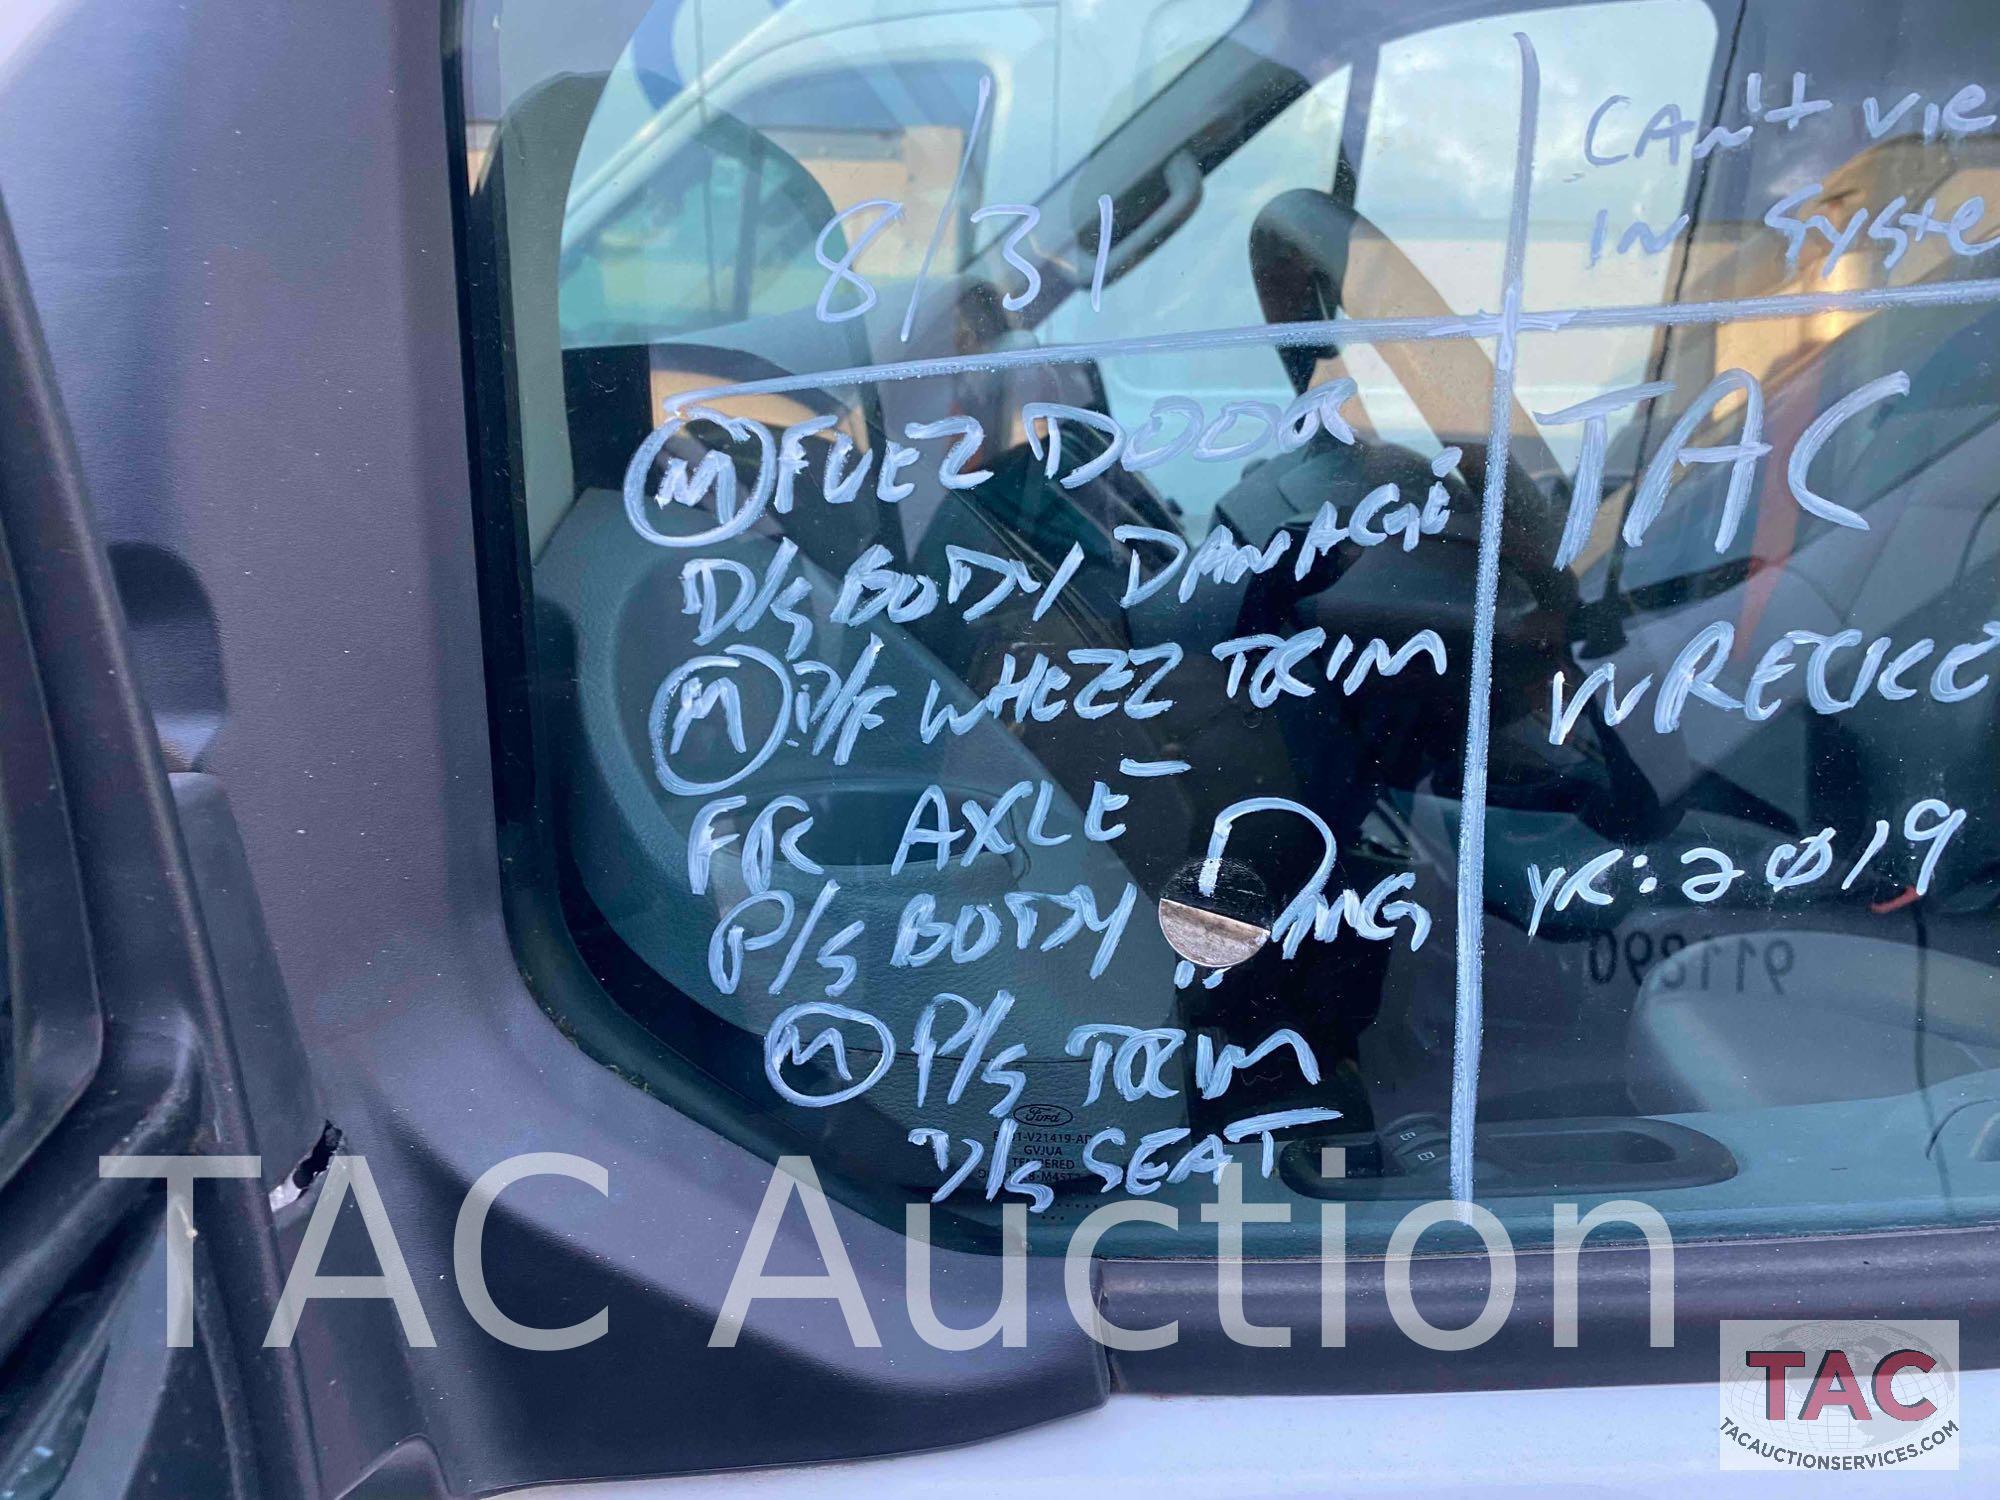 8/31
CAN'T VIE
IN SYSTE
Ⓜ FUEL DOOR
D/S BODY DAMAGE
Ⓜ P/F WHEEL TRIM
FR AXLE
P/S BODY DMG
Ⓜ P/S TRIM
D/S SEAT
TAC
WRECKE
YR: 2019
911290
Ford
1-V21419-A
GVJUA
TEMPERED
TAC Auction
TAC
TACAUCTIONSERVICES.COM